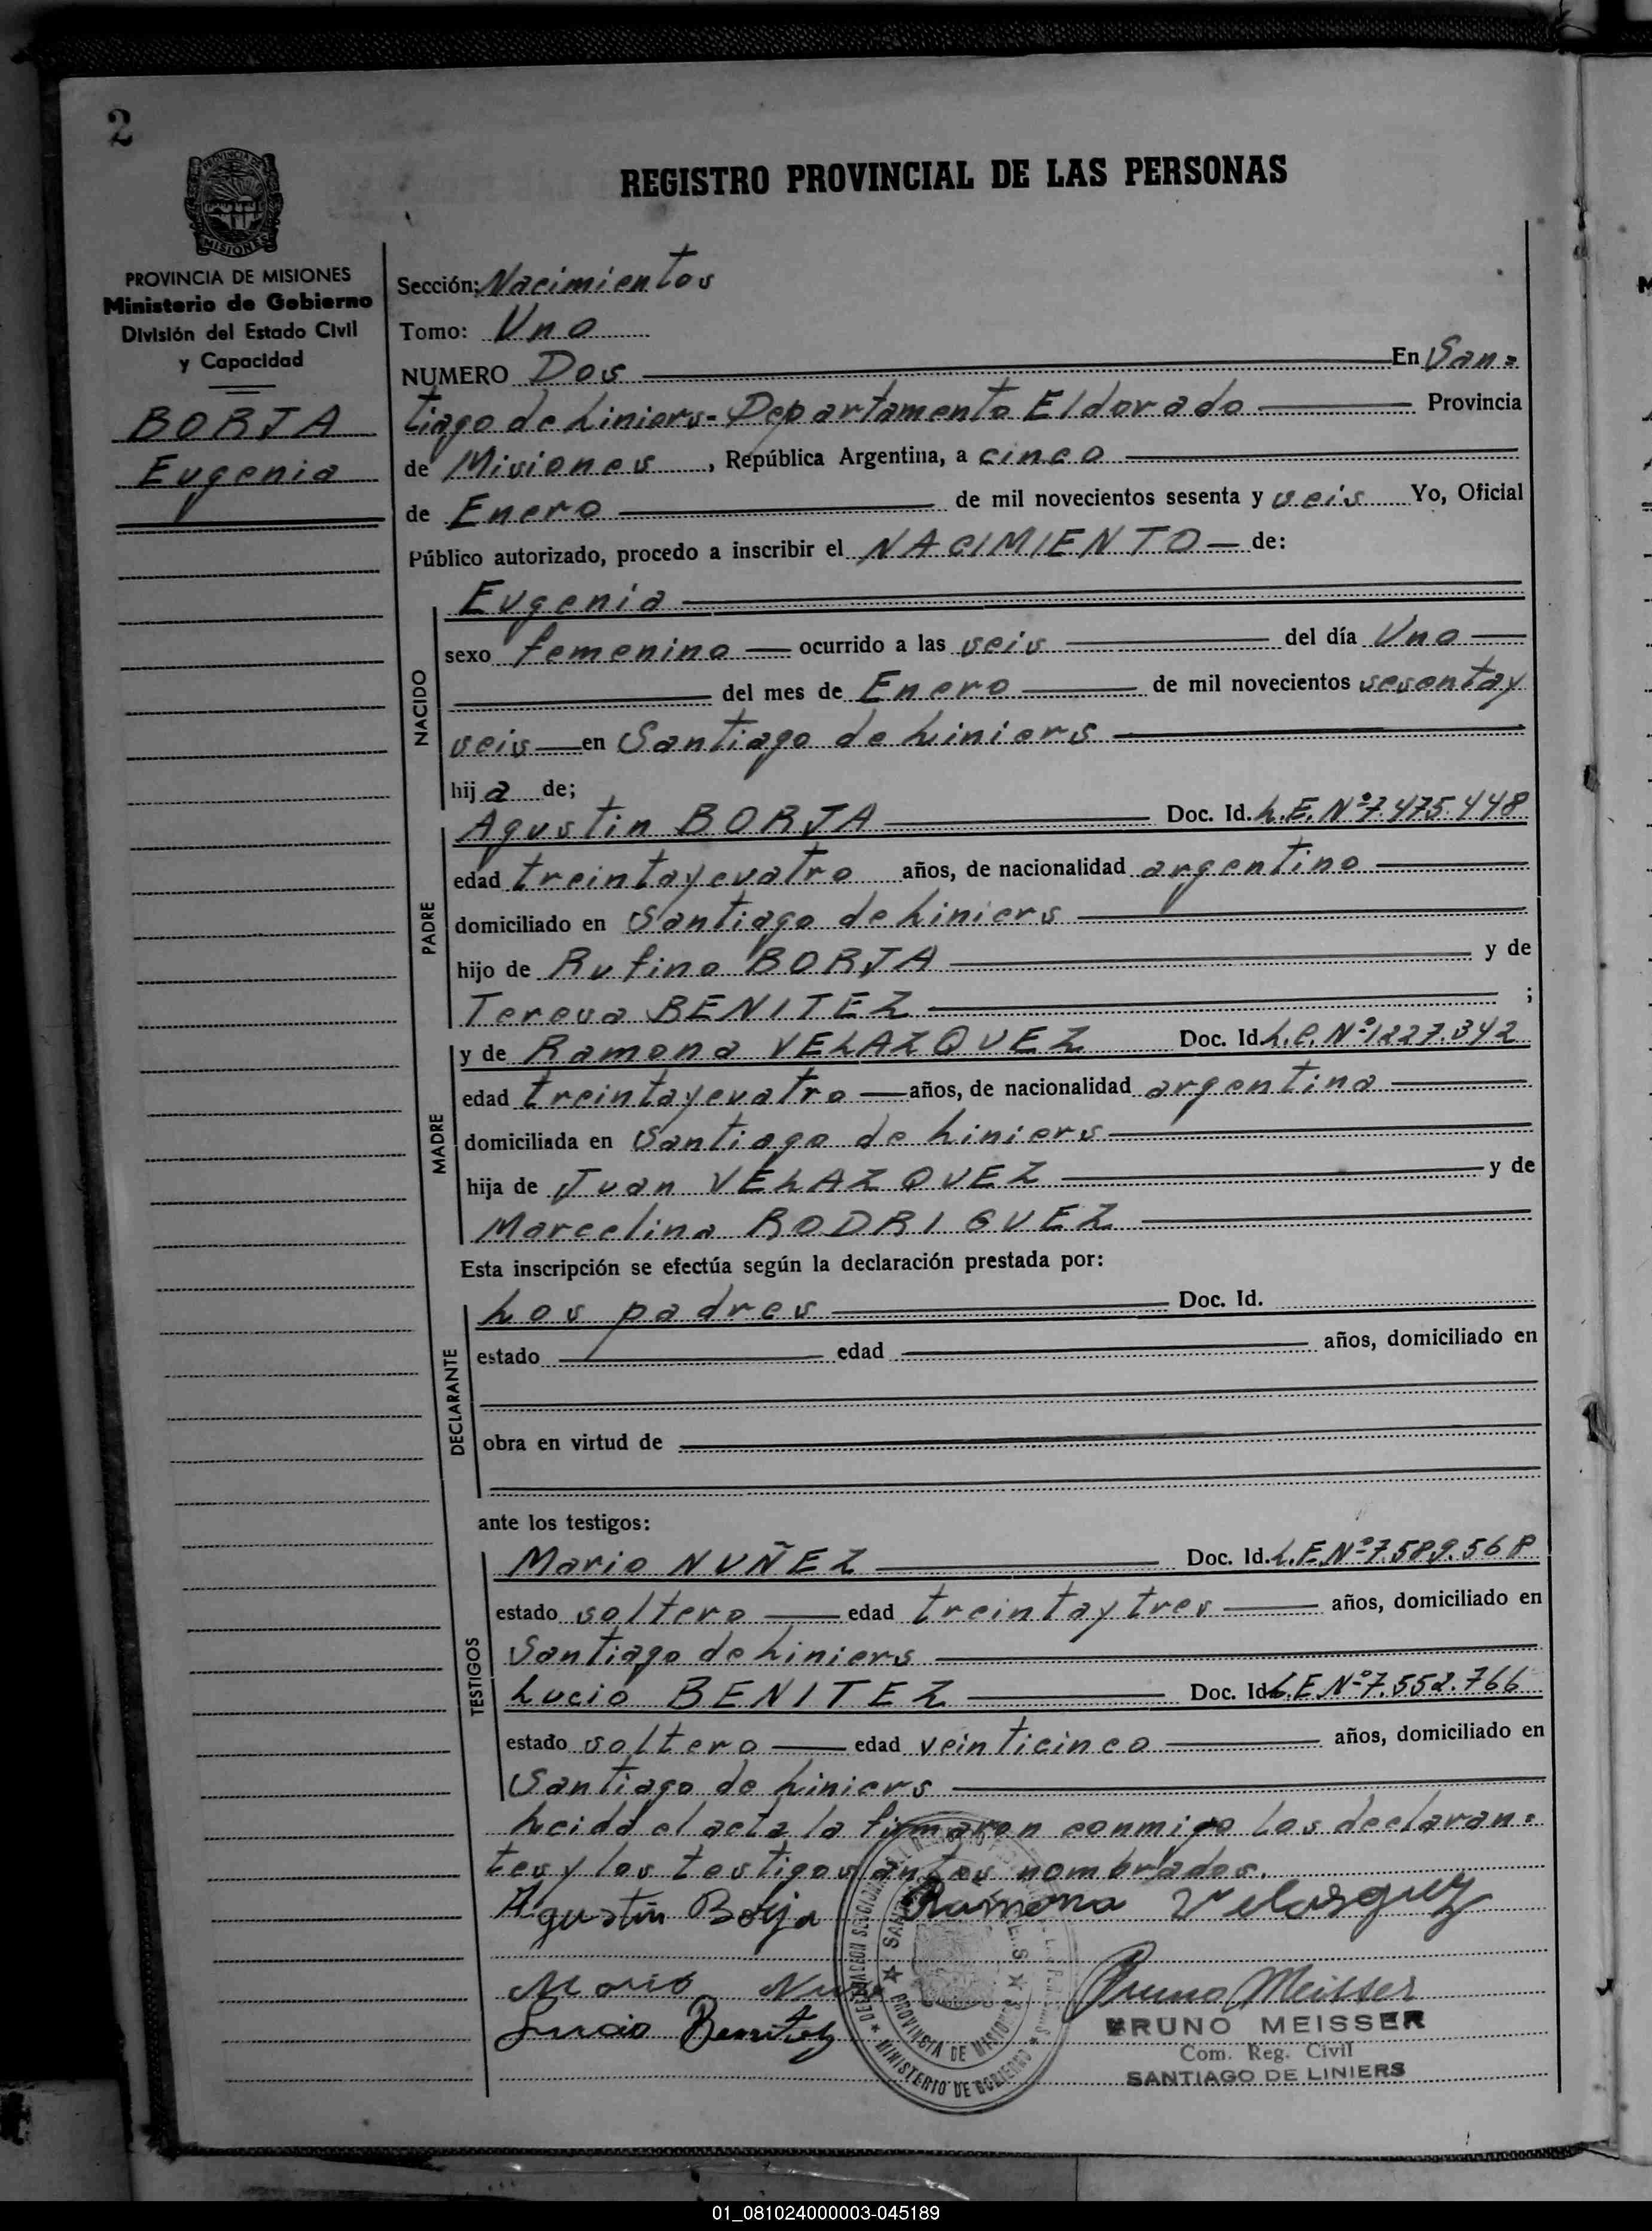 2
PROVINCIA DE
MISIONES
REGISTRO PROVINCIAL DE LAS PERSONAS
PROVINCIA DE MISIONES
Ministerio de Gobierno
División del Estado Civil
y Capacidad
BORJA
Eugenia
Sección: Nacimientos
Tomo: Uno
NUMERO Dos En San=
tiago de Liniers- Departamento Eldorado Provincia
de Misiones, República Argentina, a cinco
de Enero de mil novecientos sesenta y seis Yo, Oficial
Público autorizado, procedo a inscribir el NACIMIENTO de:
NACIDO
Eugenia
sexo femenino ocurrido a las seis del día Uno
del mes de Enero de mil novecientos sesentay
seis en Santiago de Liniers
hija de;
PADRE
Agustin BORJA Doc. Id. L.E. Nº 7.475.448
edad treintaycuatro años, de nacionalidad argentino
domiciliado en Santiago de Liniers
hijo de Rufino BORJA y de
Teresa BENITEZ ;
MADRE
y de Ramona VELAZQUEZ Doc. Id. L.C. Nº 1227.342
edad treintaycuatro años, de nacionalidad argentina
domiciliada en Santiago de Liniers
hija de Juan VELAZQUEZ y de
Marcelina RODRIGUEZ
Esta inscripción se efectúa según la declaración prestada por:
DECLARANTE
Los padres Doc. Id.
estado edad años, domiciliado en
obra en virtud de
ante los testigos:
TESTIGOS
Mario NUÑEZ Doc. Id. L.E. Nº 7.589.568
estado soltero edad treintaytres años, domiciliado en
Santiago de Liniers
Lucio BENITEZ Doc. Id. L.E. Nº 7.552.766
estado soltero edad veinticinco años, domiciliado en
Santiago de Liniers
Leida el acta la firmaron conmigo los declaran=
tes y los testigos antes nombrados.
Agustin Borja Ramona Velasquez
Mario
Lucio Benitez
Bruno Meisser
BRUNO MEISSER
Com. Reg. Civil
SANTIAGO DE LINIERS
PROVINCIA DE MISIONES
MINISTERIO DE GOBIERNO
01_081024000003-045189